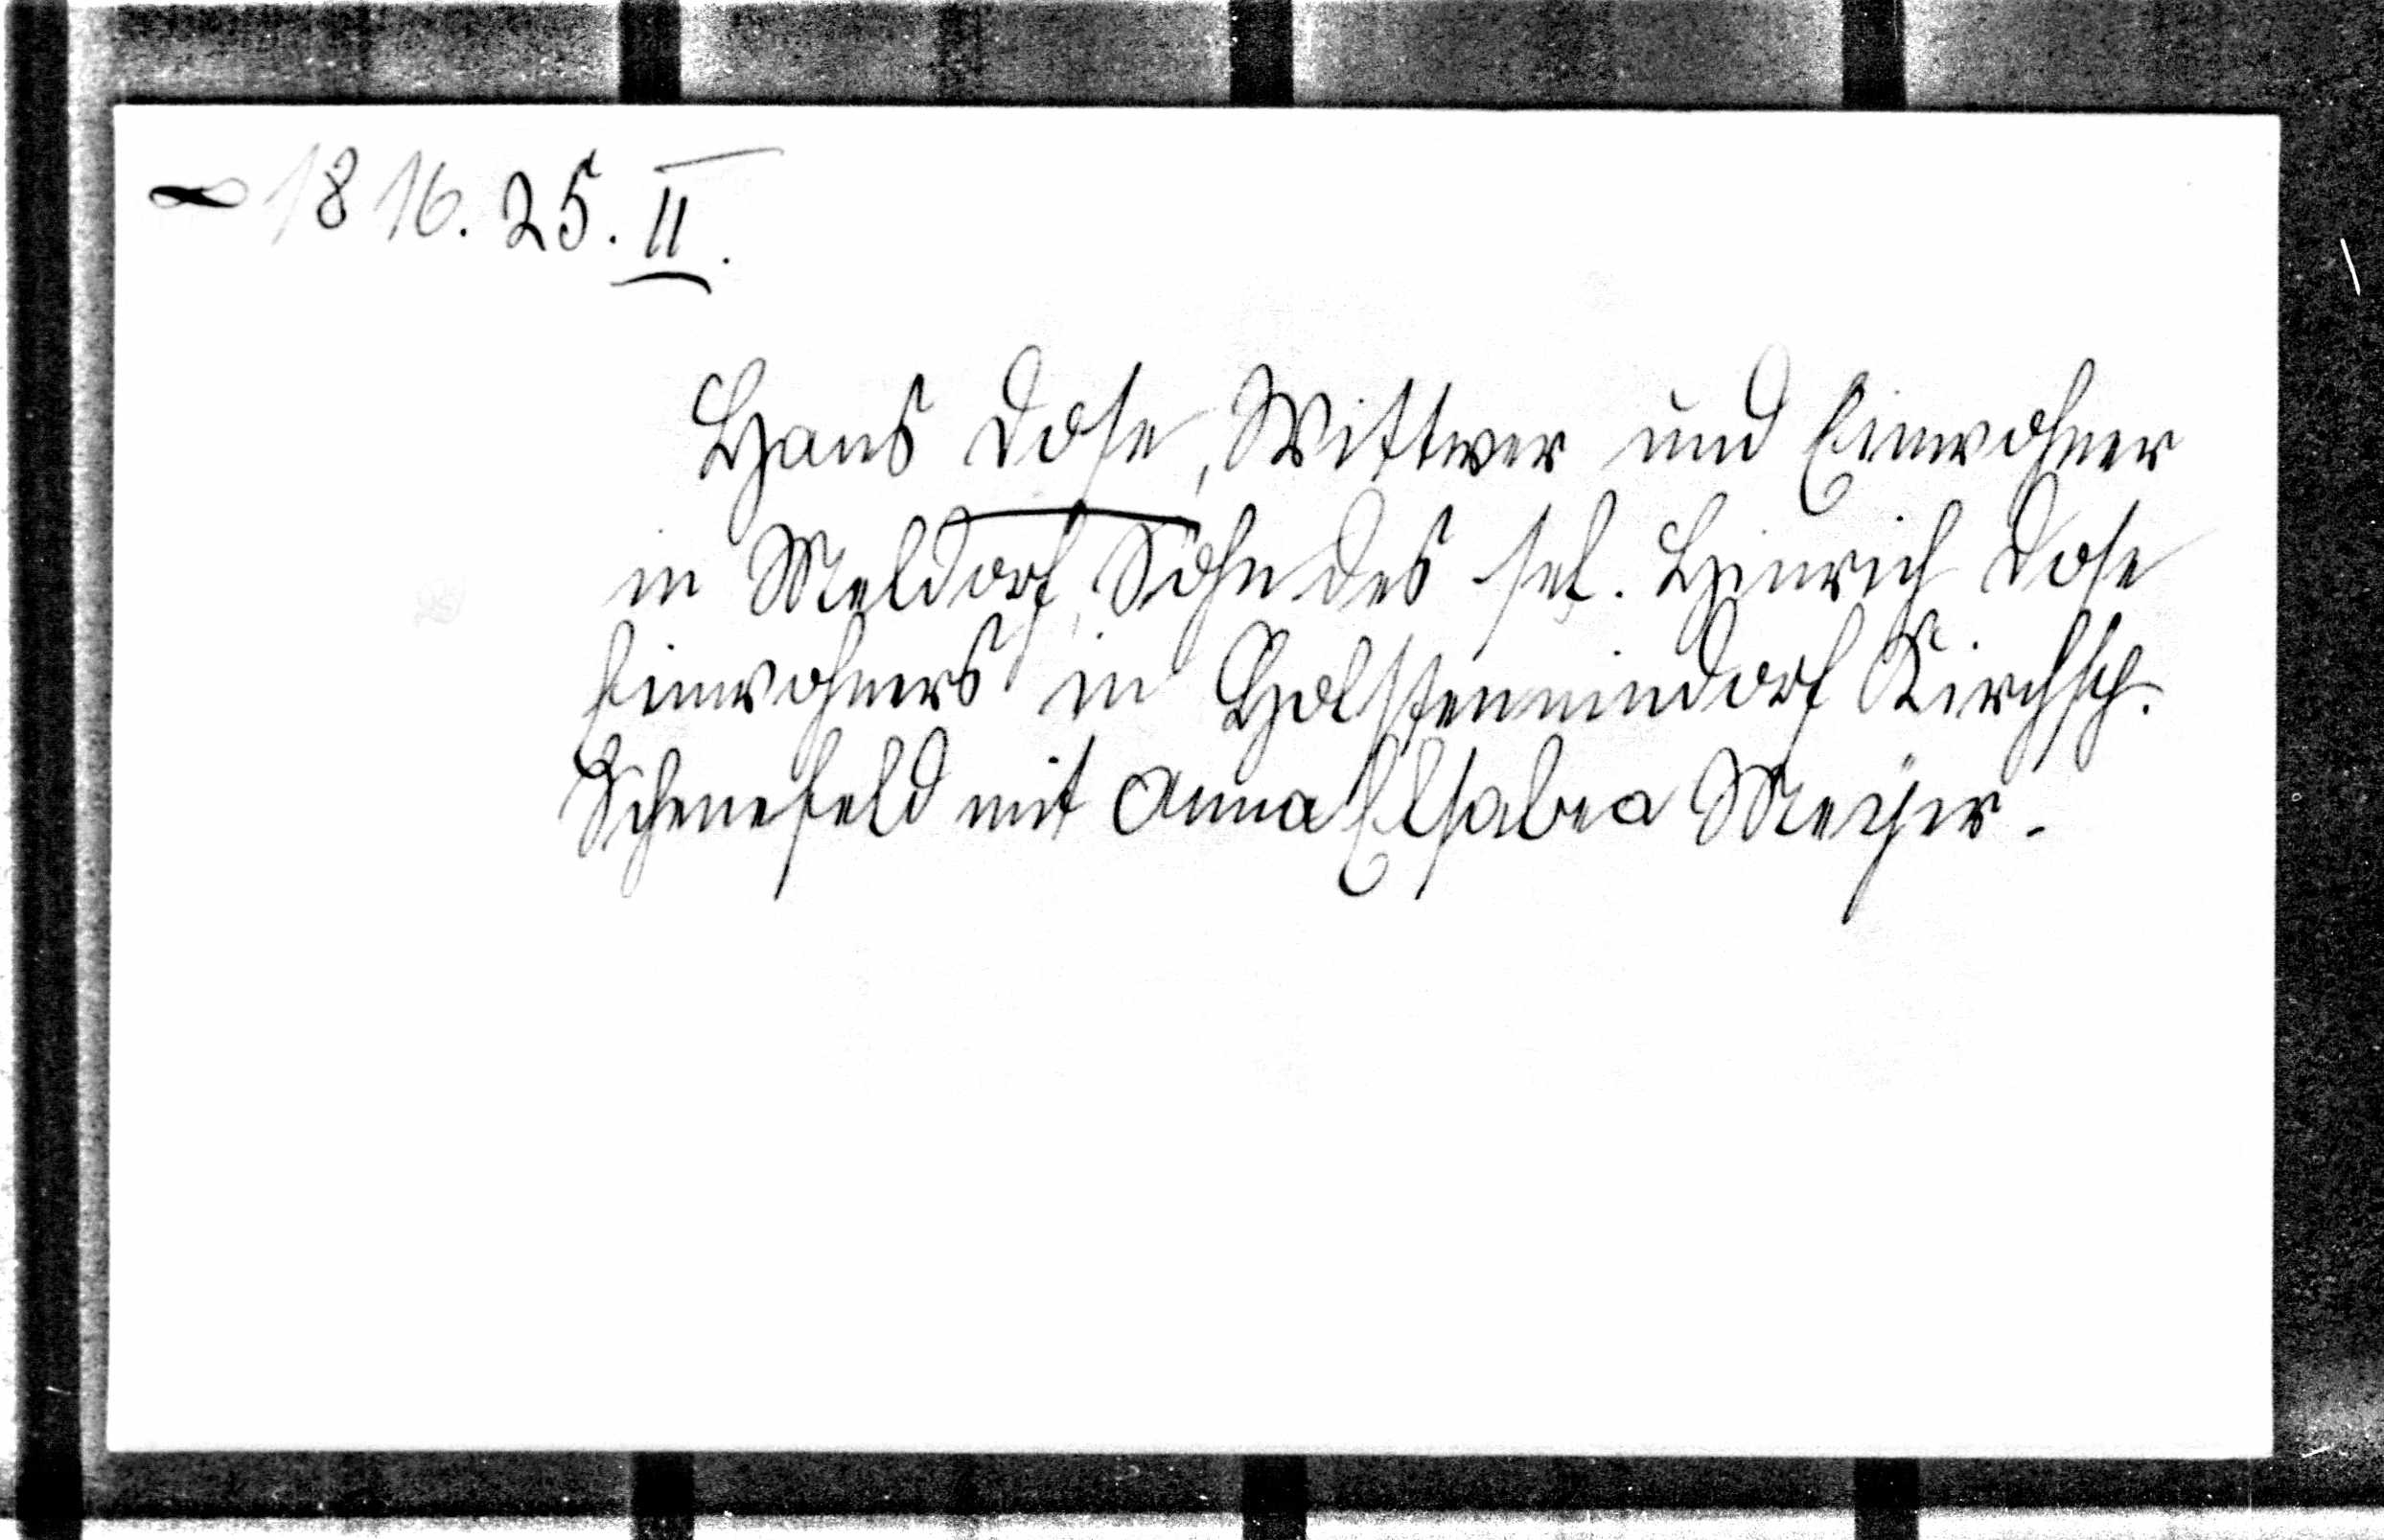 ∞ 1816. 25. II.
Hans Dose, Wittwer und Einwohner
in Meldorf, Sohn des sel. Hinrich Dose
Einwohners in Holstenniendorf Kirchsp.
Schenefeld mit Anna Elsabea Meyer.